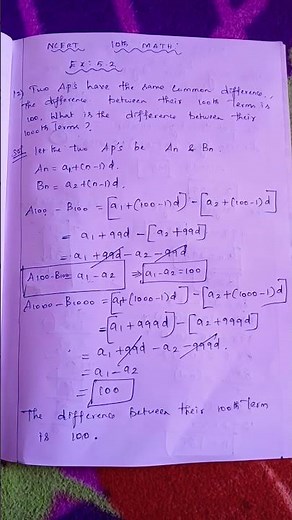 NCERT 10th MATH:
Ex: 5.2
12) Two Ap's have the same common difference.
The difference between their 100th Term is
100. What is the difference between their
1000th Terms?
Sol let the two AP's be An & Bn.
An = a1+(n-1)d.
Bn = a2+(n-1)d.
A100 - B100 = [a1+(100-1)d] - [a2+(100-1)d]
= a1+99d - [a2+99d]
= a1+99d - a2 - 99d
A100-B100 = a1-a2 ⇒ a1-a2=100
A1000 - B1000 = [a1+(1000-1)d] - [a2+(1000-1)d]
= [a1+999d] - [a2+999d]
= a1+999d - a2 - 999d.
= a1-a2
= 100
The difference between their 100th Term
is 100.